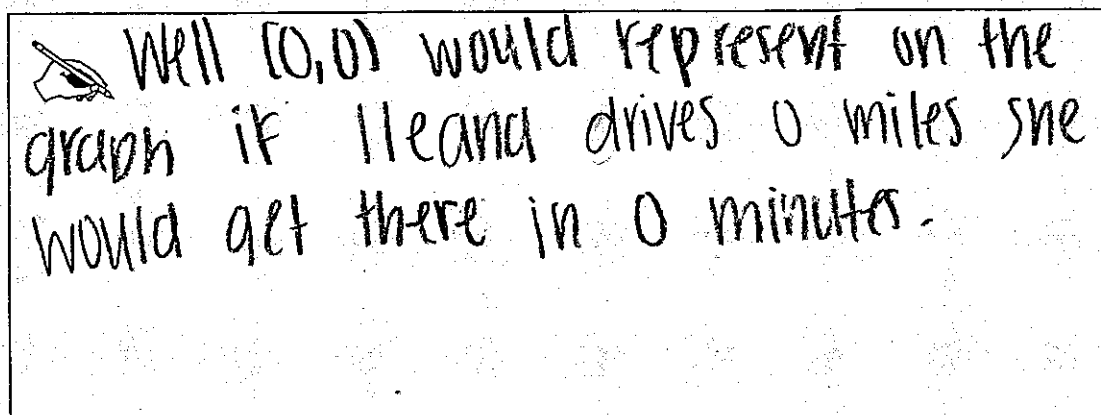 Well (0,0) would represent on the
graph if Ileana drives 0 miles she
would get there in 0 minutes.